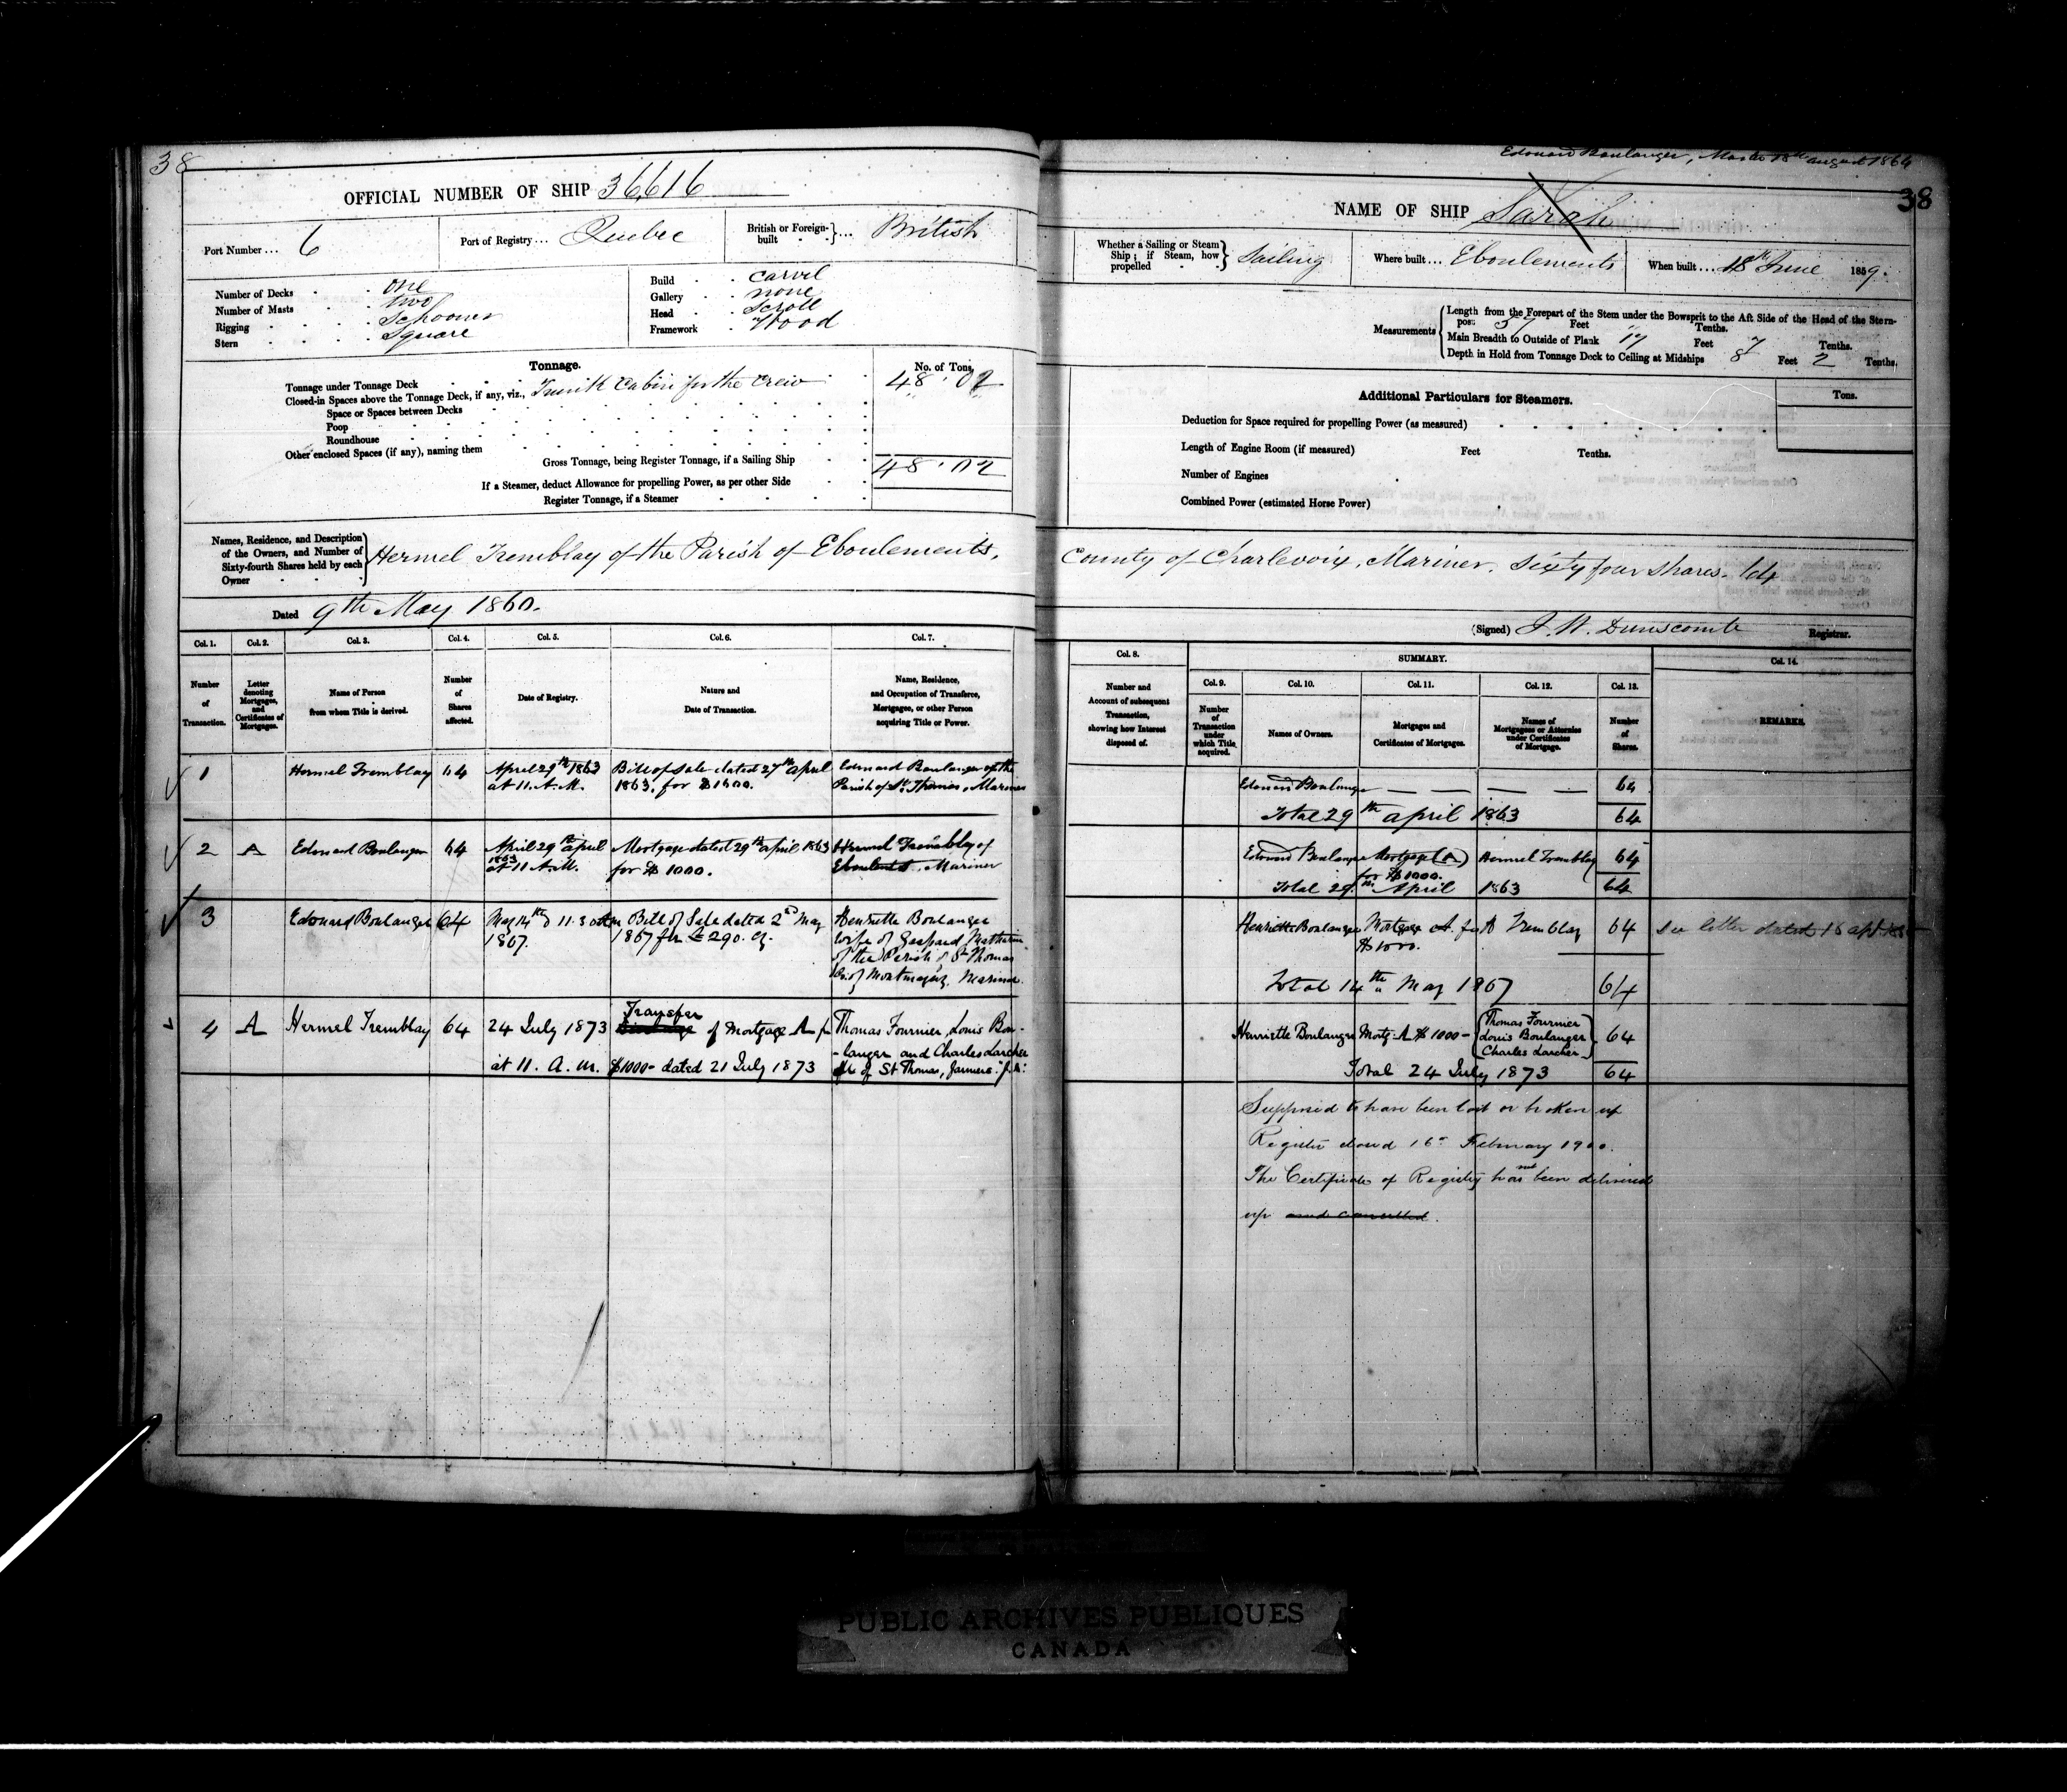 38
OFFICIAL NUMBER OF SHIP 36,616
Port Number ... 6
Port of Registry ... Quebec
British or Foreign-built ... British
Number of Decks . . one
Number of Masts . . two
Rigging . . . Schooner
Stern . . . . Square
Build . . carvel
Gallery . . none
Head . . scroll
Framework . Wood
Tonnage.
No. of Tons.
Tonnage under Tonnage Deck 48.02
Closed-in Spaces above the Tonnage Deck, if any, viz., Trunk Cabin for the crew " "
Space or Spaces between Decks
Poop
Roundhouse
Other enclosed Spaces (if any), naming them
Gross Tonnage, being Register Tonnage, if a Sailing Ship 48.02
If a Steamer, deduct Allowance for propelling Power, as per other Side
Register Tonnage, if a Steamer
Names, Residence, and Description of the Owners, and Number of Sixty-fourth Shares held by each Owner
Hermel Tremblay of the Parish of Eboulements,
Dated 9th May 1860.
Col. 1. Col. 2. Col. 3. Col. 4. Col. 5. Col. 6. Col. 7.
Number of Transaction.
Letter denoting Mortgages, and Certificates of Mortgages.
Name of Person from whom Title is derived.
Number of Shares affected.
Date of Registry.
Nature and Date of Transaction.
Name, Residence, and Occupation of Transferee, Mortgagee, or other Person acquiring Title or Power.
1 Hermel Tremblay 64
April 29th 1863
at 11. A.M.
Bill of Sale dated 27th April
1863, for $1600.
Edouard Boulanger of the
Parish of St. Thomas, Mariner
2 A Edouard Boulanger 64
April 29th april
1863
at 11 A.M.
Mortgage dated 29th april 1863
for $ 1000.
Hermel Tremblay of
Eboulements, Mariner
3 Edouard Boulanger 64
May 14th 11.30 am
1867.
Bill of Sale dated 2nd May
1867 for £290. Cy.
Henriette Boulanger
wife of Gaspard
of the Parish of St Thomas
Co. of Montmagny. Mariner
4 A Hermel Tremblay 64
24 July 1873
at 11. A. M.
Transfer
of Mortgage A for
$1000- dated 21 July 1873
Thomas Fournier, Louis Bou-
-langer and Charles Larcher
all of St Thomas, farmers.
Edouard Boulanger, Master 18th august 1864
38
NAME OF SHIP Sarah
Whether a Sailing or Steam Ship; if Steam, how propelled Sailing
Where built ... Eboulements
When built ... 18th June 1859.
Measurements
Length from the Forepart of the Stem under the Bowsprit to the Aft Side of the Head of the Stern-
post 57 Feet " Tenths.
Main Breadth to Outside of Plank 17 Feet 7 Tenths.
Depth in Hold from Tonnage Deck to Ceiling at Midships 8 Feet 2 Tenths.
Additional Particulars for Steamers.
Tons.
Deduction for Space required for propelling Power (as measured)
Length of Engine Room (if measured) Feet Tenths.
Number of Engines
Combined Power (estimated Horse Power)
County of Charlevoix, Mariner. Sixty four shares. 64
(Signed) J. W. Dunscomb Registrar.
Col. 8. SUMMARY. Col. 14.
Col. 9. Col. 10. Col. 11. Col. 12. Col. 13.
Number and Account of subsequent Transaction, showing how Interest disposed of.
Number of Transaction under which Title acquired.
Names of Owners.
Mortgages and Certificates of Mortgages.
Names of Mortgagees or Attornies under Certificates of Mortgage.
Number of Shares.
REMARKS.
Edouard Boulanger — — — — 64
Total 29th april 1863 64
Edouard Boulanger Mortgage (A) Hermel Tremblay 64
for $ 1000.
Total 29th April 1863 64
Henriette Boulanger Mortgage A. for H Tremblay 64 See letter dated 18
$1000.
Total 14th May 1867 64
Henriette Boulanger Mortg. A $1000-
Thomas Fournier
Louis Boulanger
Charles Larcher
64
Total 24 July 1873 64
Supposed to have been lost or broken up
Register closed 16th February 1900.
The Certificate of Registry has not been delivered
up and cancelled.
PUBLIC ARCHIVES PUBLIQUES
CANADA